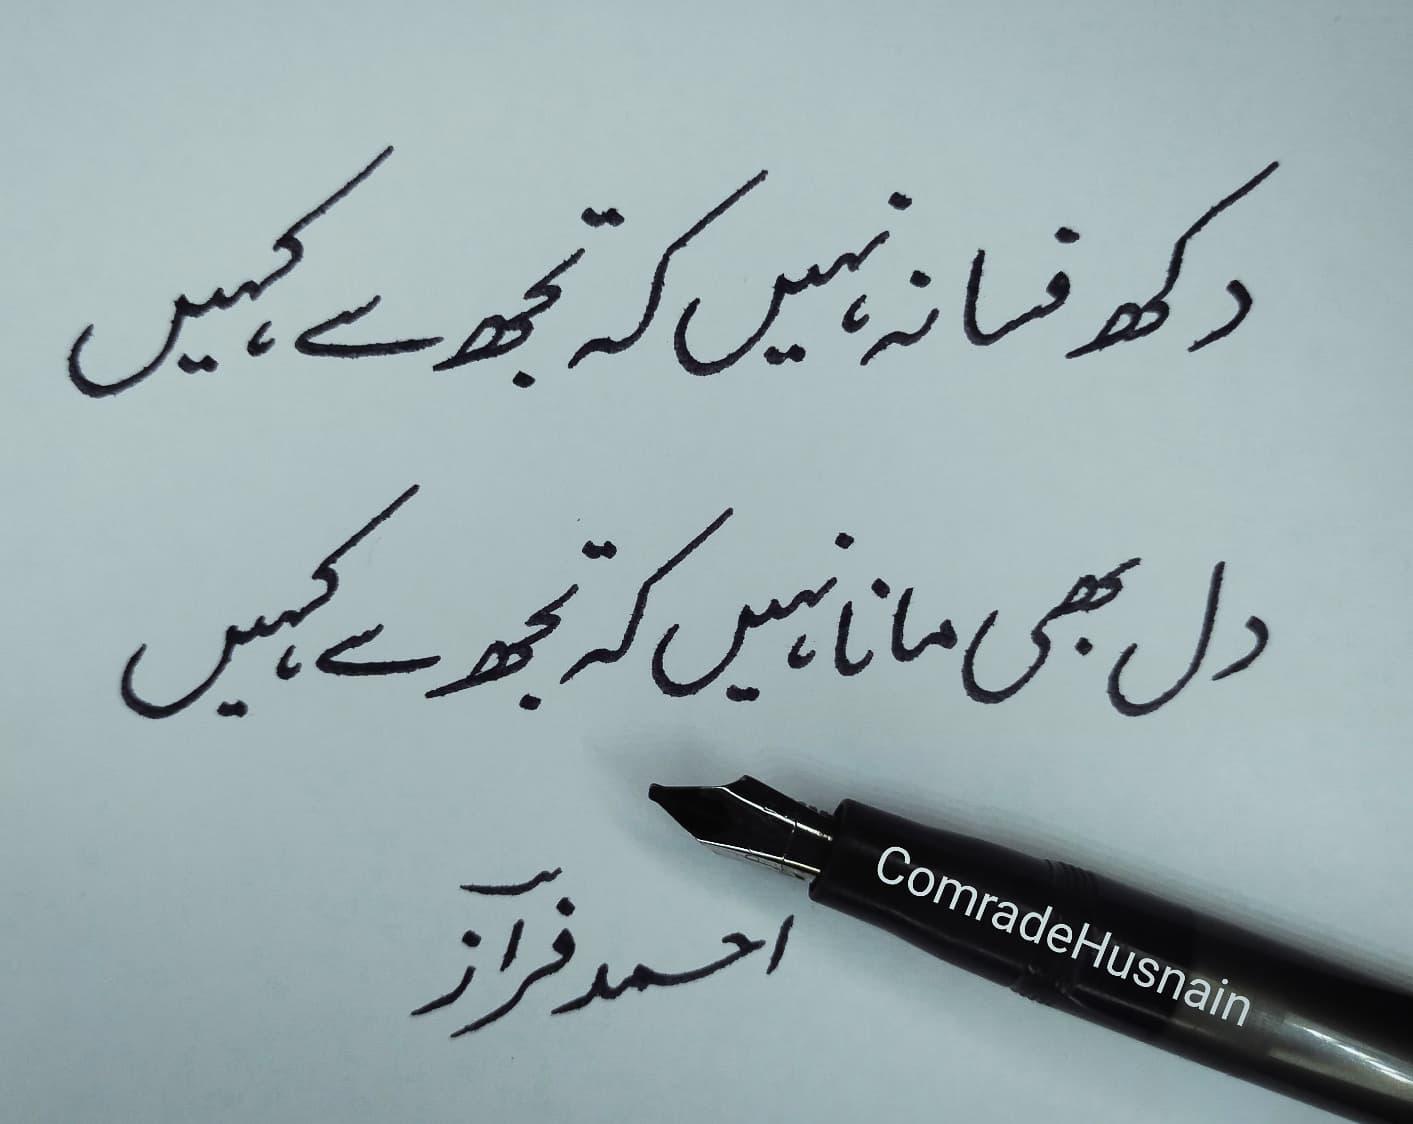 دکھ فسانہ نہیں کہ تجھ سے کہیں
دل بھی مانا نہیں کہ تجھ سے کہیں
احمد فراز
ComradeHusnain